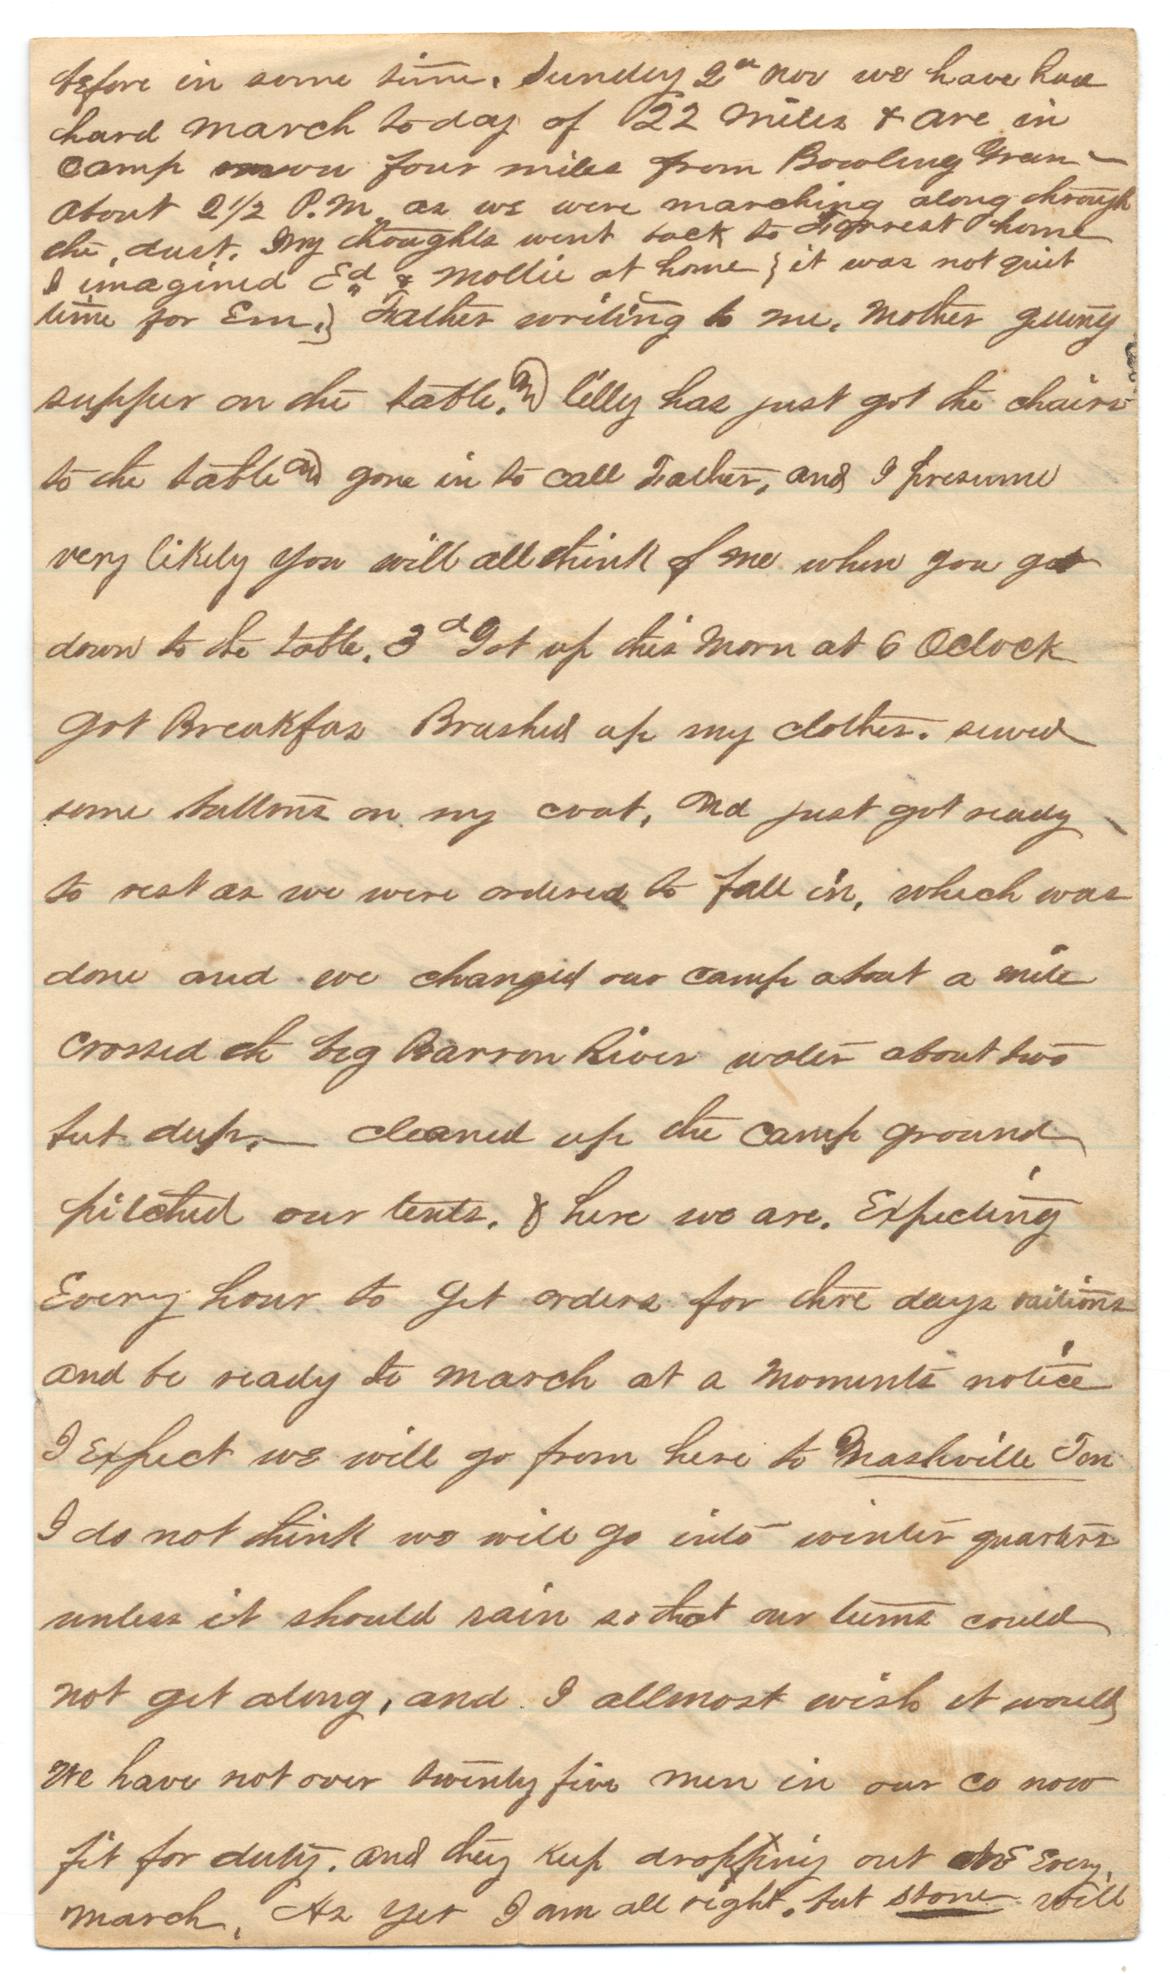 before in some time. Sunday 2nd Nov we have had
hard march to day of 22 miles & are in
camp now four miles from Bowling Green
About 2 1/2 P.M. as we were marching along through
the dust. My thoughts went back to Forrest home
I imagined Ed & Mollie at home } it was not quit
time for Em. } Father writing to me. Mother puting
supper on the table. and Lilly has just got the chairs
to the table and gone in to call Father, and I presume
very likely you will all think of me when you get
down to the table. 3d Got up this Morn at 6 Oclock
Got Breakfas Brushed up my clothes. sewed
some buttons on my coat, and just got ready
to rest as we were ordered to fall in, which was
done and we changed our camp about a mile
Crossed the big Barron River water about two
feet deep. cleaned up the camp ground
pitched our tents. & here we are. Expecting
Every hour to get orders for thre days raitions
and be ready to march at a moments notice
I Expect we will go from here to Nashville Ten
I do not think we will go into winter quarters
unless it should rain so that our teems could
not get along, and I allmost wish it would
We have not over twenty five men in our co now
fit for duty. and they keep dropping out Every
march. As yet I am all right. but stone will